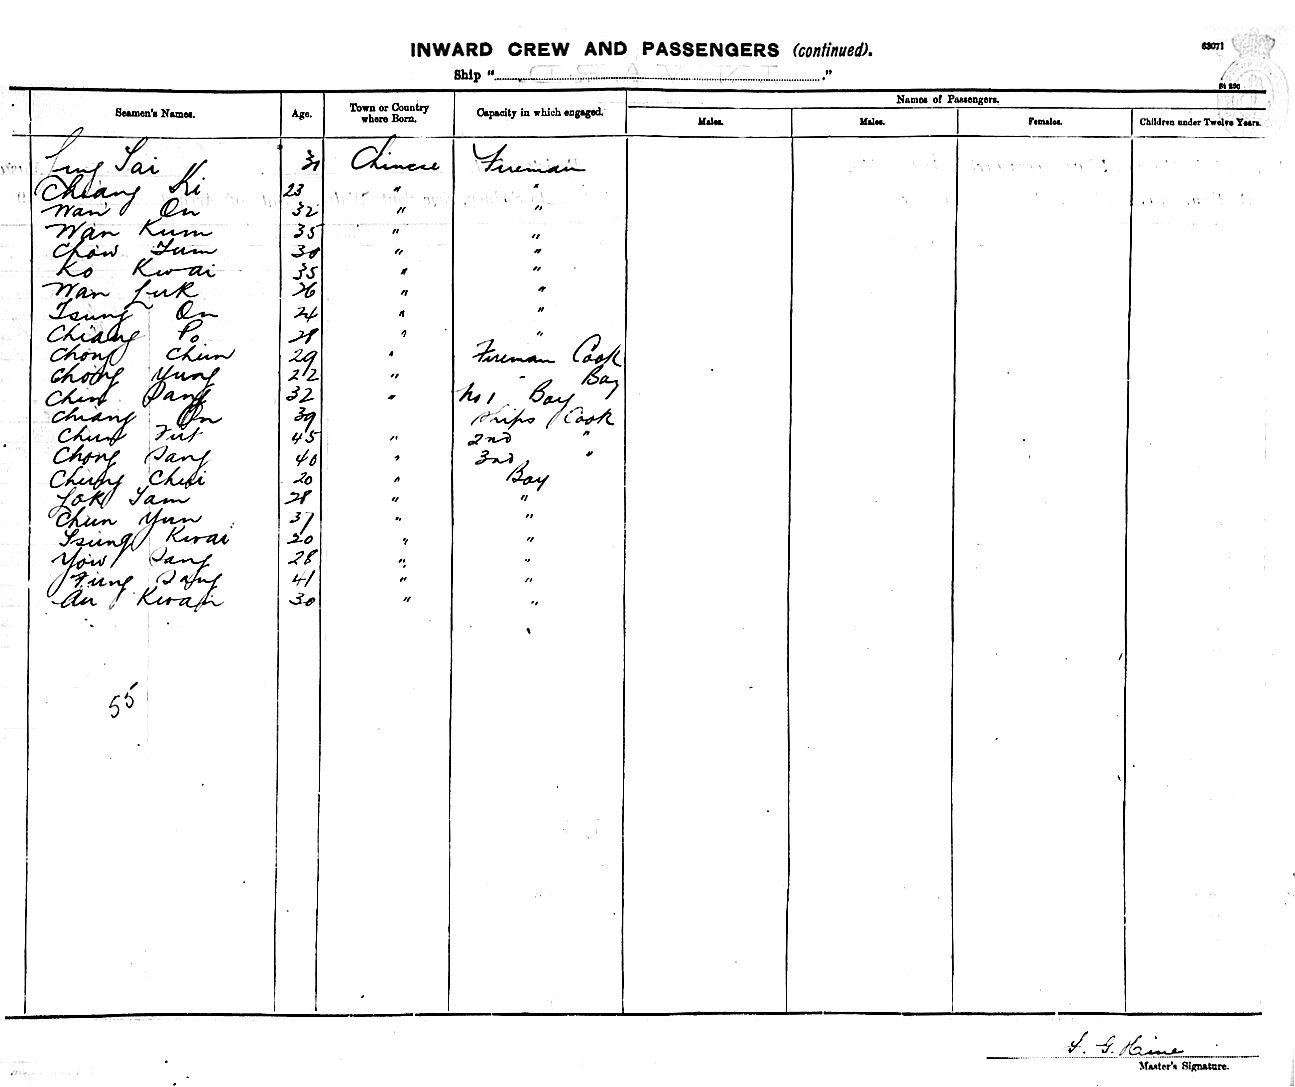 INWARD CREW AND PASSENGERS (continued).
63071
Ship "
."
Seamen's Names. Age. Town or Country where Born. Capacity in which engaged. Names of Passengers.
Males. Males. Females. Children under Twelve Years.
Ling Tai 31 Chinese Fireman
Chiang Ki 23 " "
Wan On 32 " "
Wan Kum 35 " "
Chow Tum 30 " "
Ko Kwai 35 " "
Wan Luk 26 " "
Tsung On 24 " "
Chiang Po 28 " "
Chong Chun 29 " Fireman Cook
Chong Yung 22 " " Boy
Chun Sang 32 " No 1 Boy
Chiang On 39 Ships Cook
Chun Fut 45 " 2nd "
Chong Sang 40 " 3rd "
Chung Chui 20 " Boy
Lok Tam 28 " "
Chun Yun 37 " "
Tsung Kwai 20 " "
Yow Sang 28 " "
Fung Sang 41 " "
Au Kwan 30 " "
55
Master's Signature.